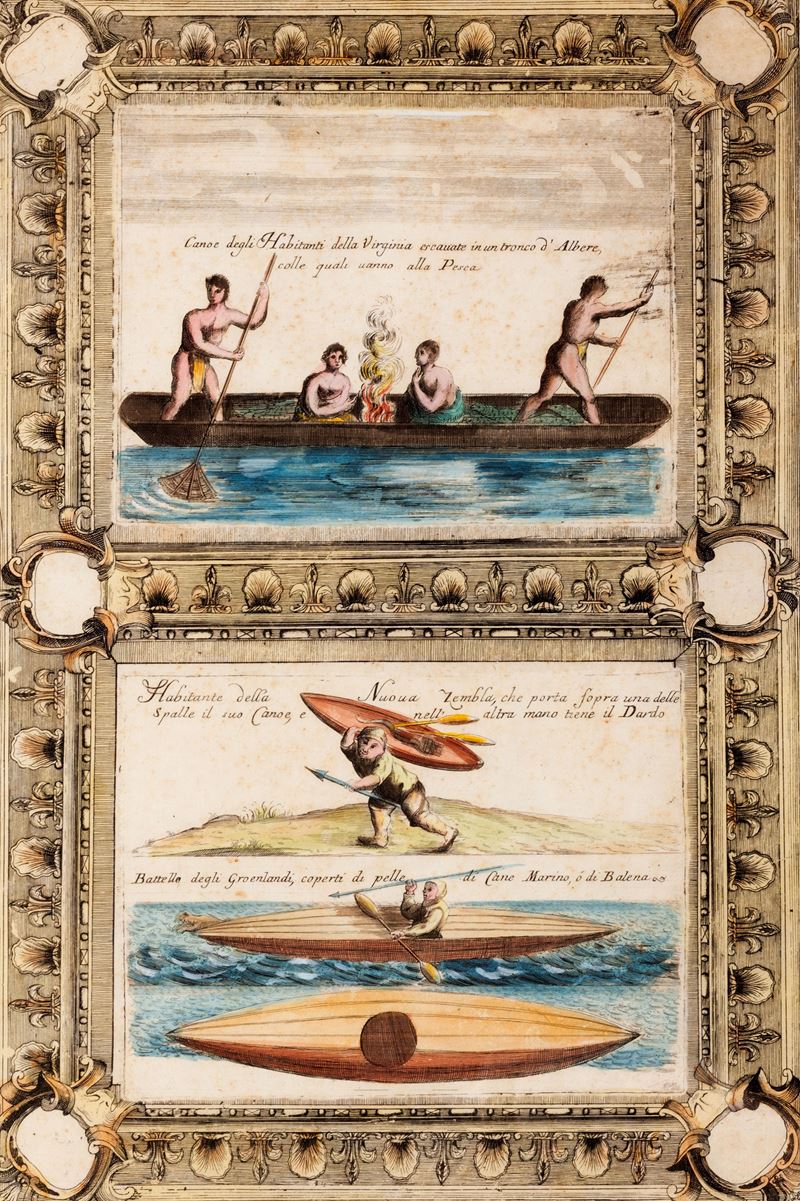 Canoe degli Habitanti della Virginia escauate in un tronco d' Albere,
colle quali uanno alla Pesca
Habitante della Nuoua Zembla, che porta sopra una delle
Spalle il suo Canoe, e nelli altra mano tiene il Dardo
Battello degli Groenlandi, coperti di pelle di Cane Marino, ó di Balena